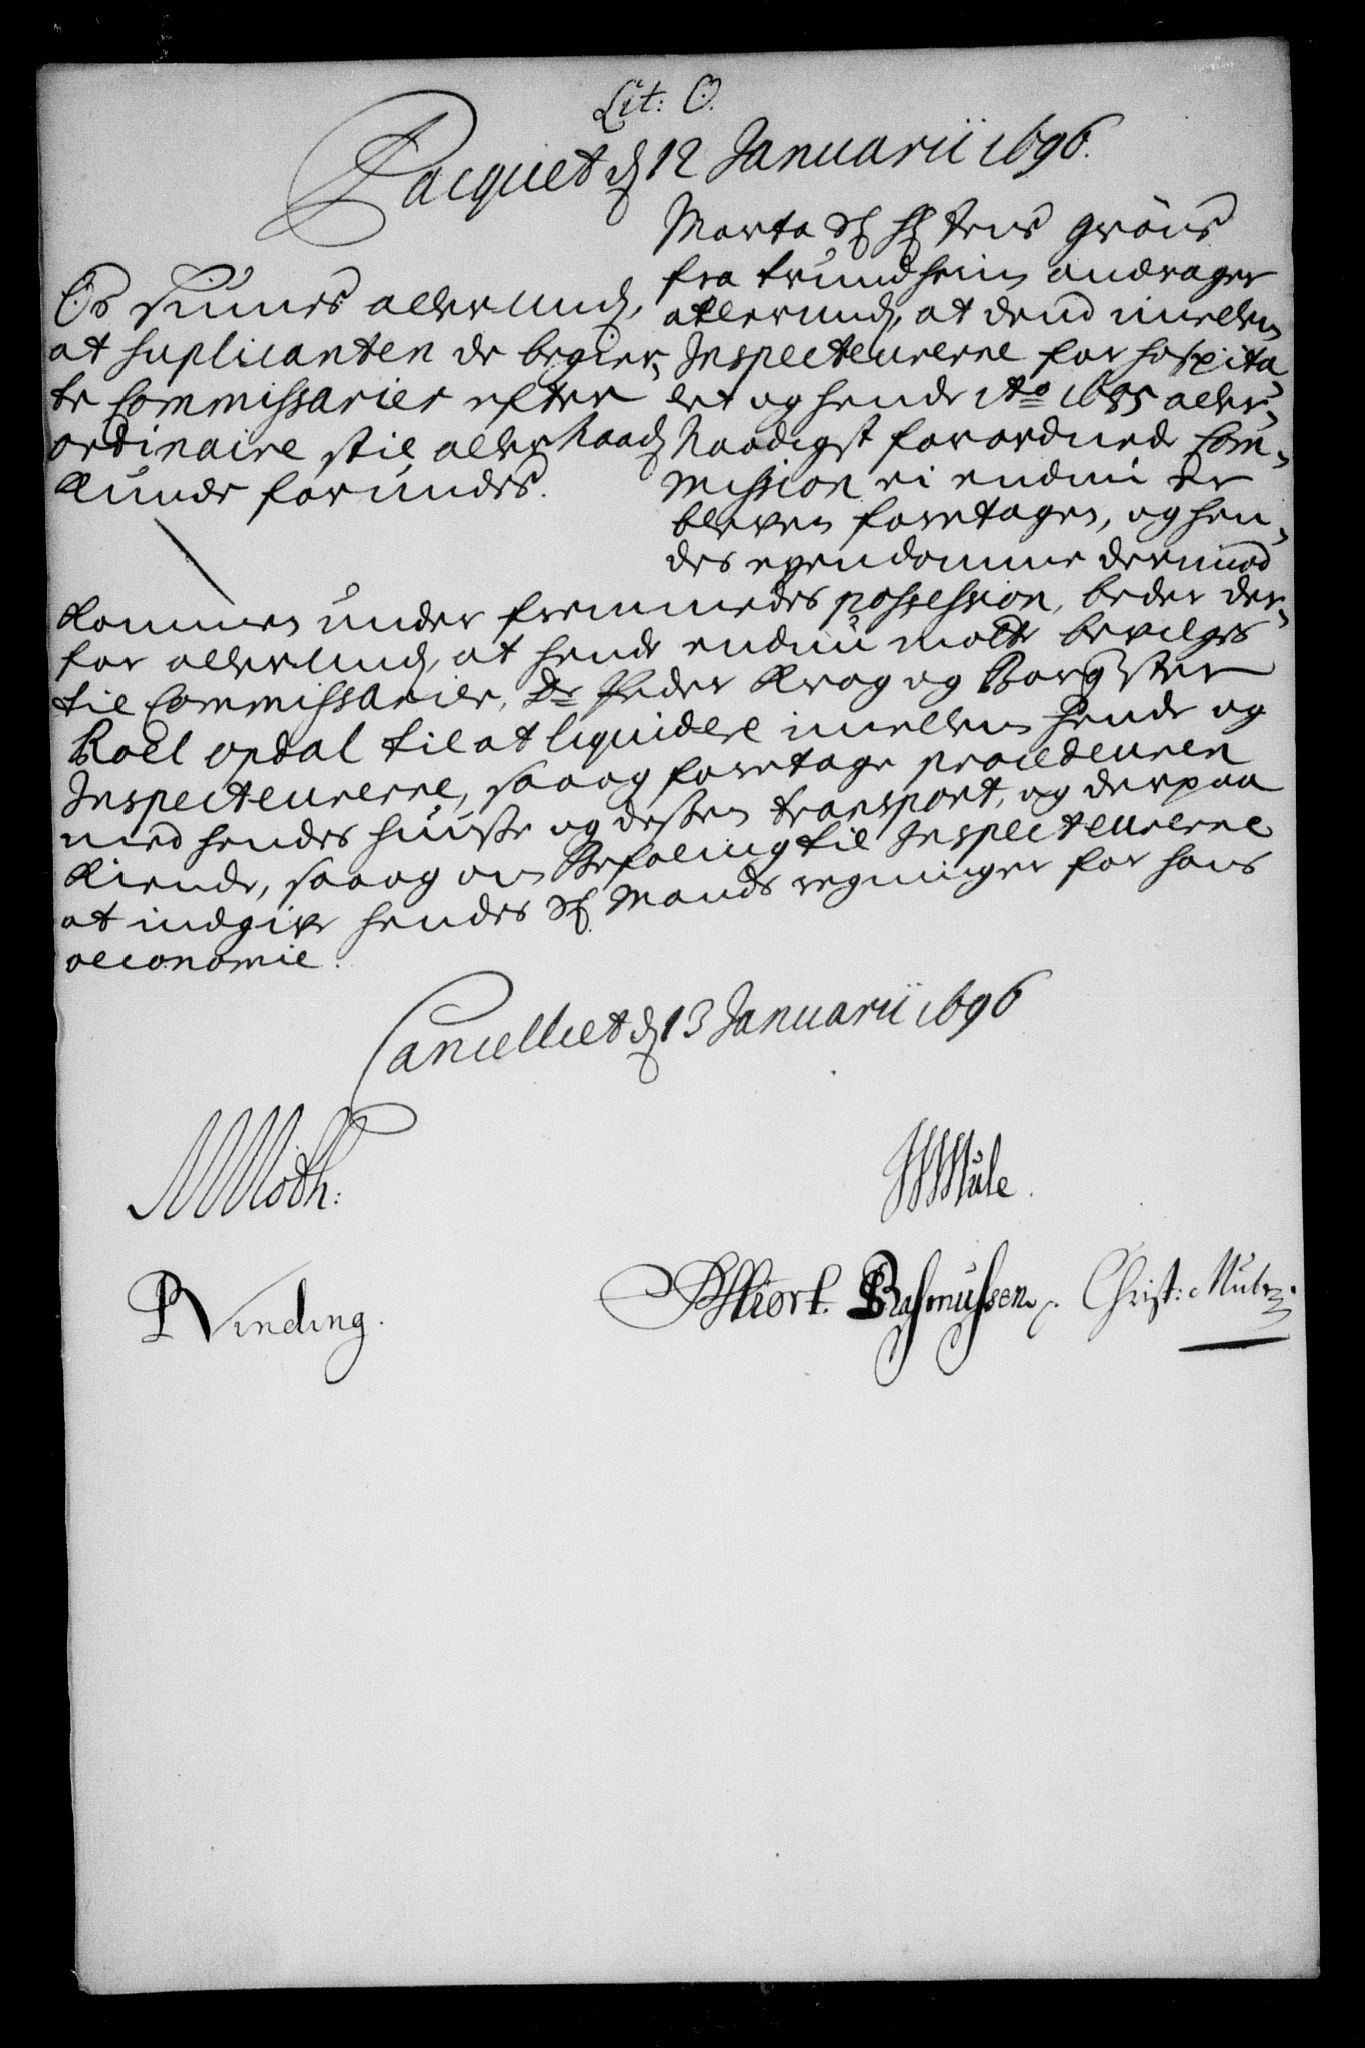 Lit: O.
Pacquet d 12 Januarii 1696.
Marta Sl Hl Jens Gröns
fra Trundheim andrager
allerund, at dend imellem
Inspecteurerne for hospita-
let og hende Ao 1695 aller-
naadigst forordnede Com-
mission ei endnu er
bleven foretagen, og hen-
des eyendomme dermed
Os siunes allerund,
at suplicanten de begier-
te Commissarier efter
ordinaire stil allernaad
kunde forundes.
kommen under fremmedes possession, beder der-
for allerund, at hende endnu motte bevilges
til Commissarier, Dr Peder Krog og Borgster
Roel opdal til at liquidere imellem hende og
Inspecteurerne, saaog foretage proceduren
med hendes huuse og dessen transport, og derpaa
kiende, saaog om Befaling til Inspecteurerne
at indgive hendes Sl. Mands regninger for hans
oeconomie.
Cancelliet d 13 Januarii 1696
MMoth:
WMule.
PVinding.
PHiort. Rasmussen. Christ: Muler.